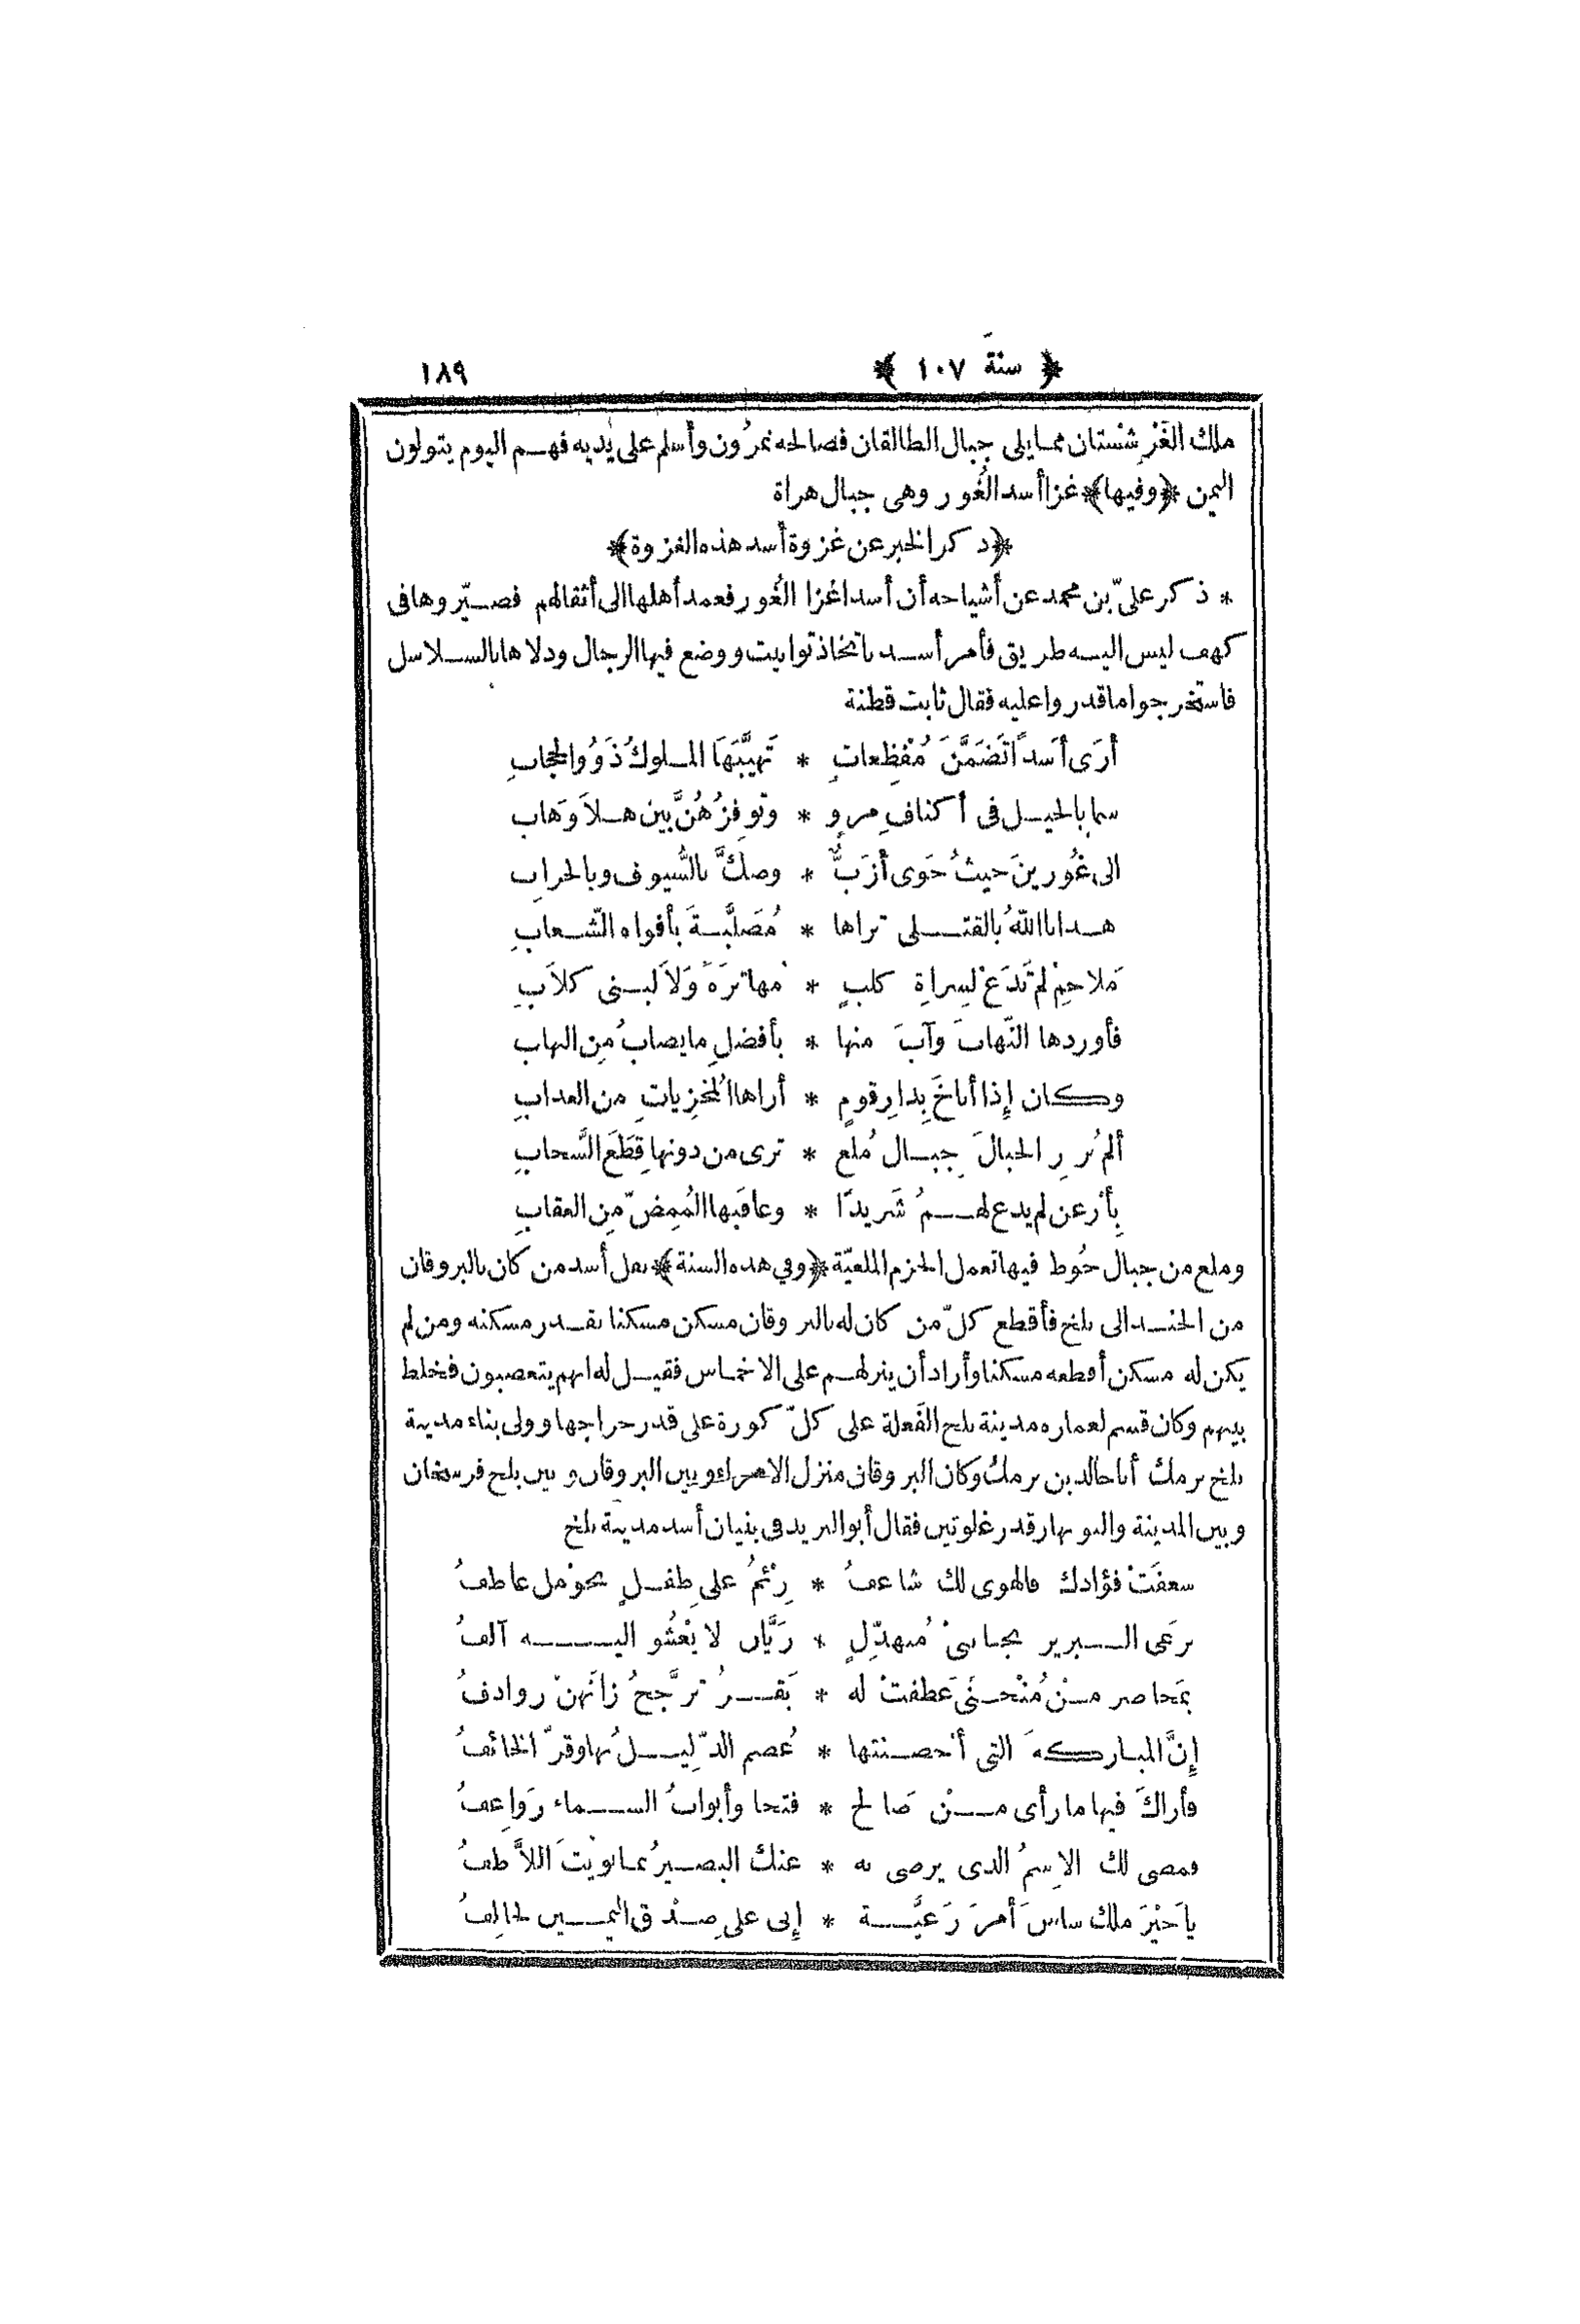 ﴿ سنة ١٠٧ ﴾ ١٨٩
ملك الغَرْشِسْتان مما يلي جبال الطالقان فصالحه نمرُون وأسلم على يديه فهم اليوم يتولون
اليمن ﴿وفيها﴾ غزا أسد الغُور وهي جبال هراة
﴿ذكر الخبر عن غزوة أسد هذه الغزوة﴾
* ذكر علىّ بن محمد عن أشياخه أن أسدا غزا الغُور فعمد أهلها الى أثقالهم فصيّروها فى
كهف ليس اليه طريق فأمر أسد باتخاذ توابيت ووضع فيها الرجال ودلاها بالسلاسل
فاستخرجوا ما قدروا عليه فقال ثابت قطنة
أرَى أسَداً تَضَمَّنَ مُفْظِعاتٍ * تَهَيَّبَهَا الملوكُ ذَوُو الحجابِ
سما بالخيل فى أكنافِ مروٍ * وتوفِزُهُنَّ بين هلاَ وَهاب
الى غُورينَ حيثُ حَوَى أزَبٌّ * وصكَّ بالسُّيوف وبالحرابِ
هدانا اللهُ بالقتلى تراها * مُصَلَّبَةً بأفواه الشّعابِ
مَلاحِمْ لم تَدَعْ لِسراةِ كلبٍ * مهاترَةً وَلاَ لبنى كلاَبِ
فأوردها النّهابَ وآبَ منها * بأفضلِ ما يصابُ مِن النهاب
وكان إذا أناخَ بِدارِ قومٍ * أراها المُخْزِياتِ من العذابِ
ألم تُرِرِ الجبالَ جبال مُلع * ترى من دونها قِطَعَ السَّحابِ
بِأرْعن لم يدع لهمُ شَريدًا * وعاقَبها المُمِضّ مِن العقابِ
وملع من جبال خُوط فيها تعمل الحزم الملعيّة ﴿وفي هذه السنة﴾ نقل أسد من كان بالبروقان
من الجند الى بلخ فأقطع كلّ من كان له بالبروقان مسكن مسكنا بقدر مسكنه ومن لم
يكن له مسكن أقطعه مسكنا وأراد أن ينزلهم على الاخماس فقيل له انهم يتعصبون فخلط
بينهم وكان قسم لعماره مدينة بلخ الفَعلة على كلّ كورة على قدر خراجها وولى بناء مدينة
بلخ برمك أبا خالد بن برمكُ وكان البروقان منزل الامراء وبين البروقان وبين بلخ فرسخان
وبين المدينة والنوبهار قدر غلوتين فقال أبو البريد فى بنيان أسد مدينة بلخ
شعفَتْ فؤادك فالهوى لك شاعفُ * رِئمُ على طفلٍ بحوْمل عاطفُ
ترعَى البرير بجانبىْ مُتهدّلٍ * رَيَّان لا يَعْشُو اليه آلفُ
بمَحاصر منْ مُنْحنَى عَطفتْ له * بَقرُ ترجَّحُ زانَهنّ روادفُ
إنَّ المباركهَ التى أحصنتها * عُصم الذّلِيلُ بها وقرّ الخائفُ
فأراكَ فيها ما رأى منْ صَالح * فتحا وأبوابُ السماء رَوَاعِفُ
فمضى لك الاسمُ الذى يرضى به * عنك البصيرُ بما نويْتَ اللاَّطفُ
ياَ خَيْرَ ملك ساسَ أمرَ رَعيَّة * إنى على صدْق اليمين لحَالِفُ